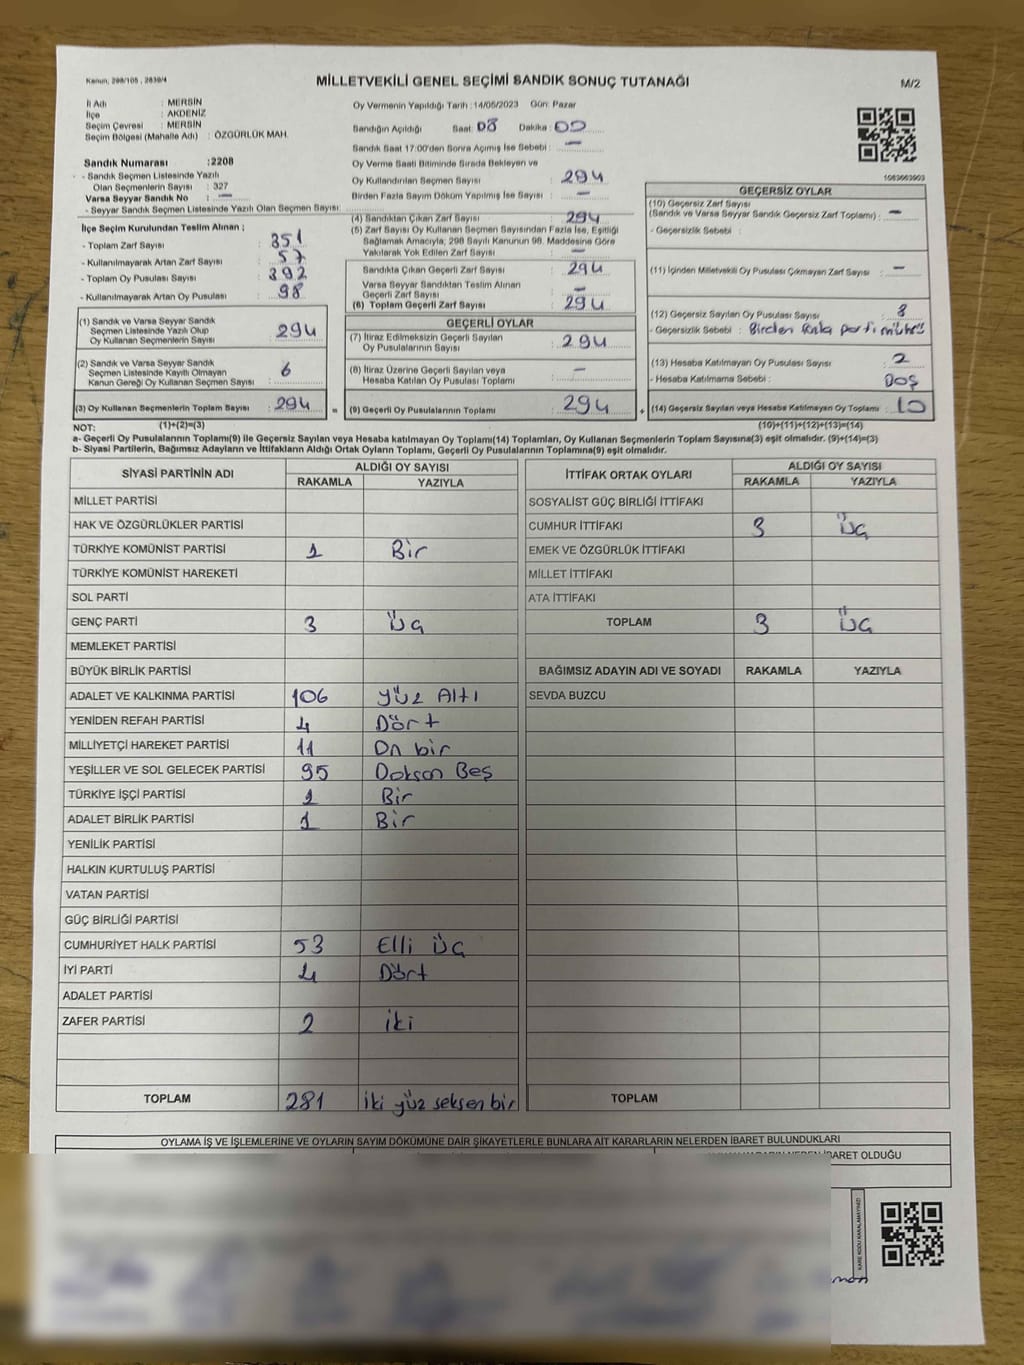 Kanun: 298/105 , 2839/4
MİLLETVEKİLİ GENEL SEÇİMİ SANDIK SONUÇ TUTANAĞI
M/2
İl Adı : MERSİN
İlçe : AKDENİZ
Seçim Çevresi : MERSİN
Seçim Bölgesi (Mahalle Adı) : ÖZGÜRLÜK MAH.
Sandık Numarası :2208
- Sandık Seçmen Listesinde Yazılı
Olan Seçmenlerin Sayısı : 327
Varsa Seyyar Sandık No : —
- Seyyar Sandık Seçmen Listesinde Yazılı Olan Seçmen Sayısı:
İlçe Seçim Kurulundan Teslim Alınan ;
- Toplam Zarf Sayısı : 351
- Kullanılmayarak Artan Zarf Sayısı : 57
- Toplam Oy Pusulası Sayısı : 392
- Kullanılmayarak Artan Oy Pusulası : 98
(1) Sandık ve Varsa Seyyar Sandık
Seçmen Listesinde Yazılı Olup
Oy Kullanan Seçmenlerin Sayısı : 294
(2) Sandık ve Varsa Seyyar Sandık
Seçmen Listesinde Kayıtlı Olmayan
Kanun Gereği Oy Kullanan Seçmen Sayısı : 6
(3) Oy Kullanan Seçmenlerin Toplam Sayısı : 294
Oy Vermenin Yapıldığı Tarih :14/05/2023 Gün: Pazar
Sandığın Açıldığı Saat: 08 Dakika: 00
Sandık Saat 17:00'den Sonra Açılmış İse Sebebi : —
Oy Verme Saati Bitiminde Sırada Bekleyen ve
Oy Kullandırılan Seçmen Sayısı : 294
Birden Fazla Sayım Döküm Yapılmış İse Sayısı : —
(4) Sandıktan Çıkan Zarf Sayısı : 294
(5) Zarf Sayısı Oy Kullanan Seçmen Sayısından Fazla İse, Eşitliği
Sağlamak Amacıyla; 298 Sayılı Kanunun 98. Maddesine Göre
Yakılarak Yok Edilen Zarf Sayısı : —
Sandıkta Çıkan Geçerli Zarf Sayısı : 294
Varsa Seyyar Sandıktan Teslim Alınan
Geçerli Zarf Sayısı : —
(6) Toplam Geçerli Zarf Sayısı : 294
GEÇERLİ OYLAR
(7) İtiraz Edilmeksizin Geçerli Sayılan
Oy Pusulalarının Sayısı : 294
(8) İtiraz Üzerine Geçerli Sayılan veya
Hesaba Katılan Oy Pusulası Toplamı : —
= (9) Geçerli Oy Pusulalarının Toplamı : 294 +
1083663903
GEÇERSİZ OYLAR
(10) Geçersiz Zarf Sayısı
(Sandık ve Varsa Seyyar Sandık Geçersiz Zarf Toplamı) : —
- Geçersizlik Sebebi :
(11) İçinden Milletvekili Oy Pusulası Çıkmayan Zarf Sayısı : —
(12) Geçersiz Sayılan Oy Pusulası Sayısı : 8
- Geçersizlik Sebebi : Birden fazla parti mühür
(13) Hesaba Katılmayan Oy Pusulası Sayısı : 2
- Hesaba Katılmama Sebebi : Boş
(14) Geçersiz Sayılan veya Hesaba Katılmayan Oy Toplamı : 10
NOT: (1)+(2)=(3) (10)+(11)+(12)+(13)=(14)
a- Geçerli Oy Pusulalarının Toplamı(9) ile Geçersiz Sayılan veya Hesaba katılmayan Oy Toplamı(14) Toplamları, Oy Kullanan Seçmenlerin Toplam Sayısına(3) eşit olmalıdır. (9)+(14)=(3)
b- Siyasi Partilerin, Bağımsız Adayların ve İttifakların Aldığı Ortak Oyların Toplamı, Geçerli Oy Pusulalarının Toplamına(9) eşit olmalıdır.
SİYASİ PARTİNİN ADI ALDIĞI OY SAYISI
RAKAMLA YAZIYLA
MİLLET PARTİSİ
HAK VE ÖZGÜRLÜKLER PARTİSİ
TÜRKİYE KOMÜNİST PARTİSİ 1 Bir
TÜRKİYE KOMÜNİST HAREKETİ
SOL PARTİ
GENÇ PARTİ 3 Üç
MEMLEKET PARTİSİ
BÜYÜK BİRLİK PARTİSİ
ADALET VE KALKINMA PARTİSİ 106 Yüz Altı
YENİDEN REFAH PARTİSİ 4 Dört
MİLLİYETÇİ HAREKET PARTİSİ 11 On bir
YEŞİLLER VE SOL GELECEK PARTİSİ 95 Doksan Beş
TÜRKİYE İŞÇİ PARTİSİ 1 Bir
ADALET BİRLİK PARTİSİ 1 Bir
YENİLİK PARTİSİ
HALKIN KURTULUŞ PARTİSİ
VATAN PARTİSİ
GÜÇ BİRLİĞİ PARTİSİ
CUMHURİYET HALK PARTİSİ 53 Elli Üç
İYİ PARTİ 4 Dört
ADALET PARTİSİ
ZAFER PARTİSİ 2 iki
TOPLAM 281 iki yüz seksen bir
İTTİFAK ORTAK OYLARI ALDIĞI OY SAYISI
RAKAMLA YAZIYLA
SOSYALİST GÜÇ BİRLİĞİ İTTİFAKI
CUMHUR İTTİFAKI 3 Üç
EMEK VE ÖZGÜRLÜK İTTİFAKI
MİLLET İTTİFAKI
ATA İTTİFAKI
TOPLAM 3 Üç
BAĞIMSIZ ADAYIN ADI VE SOYADI RAKAMLA YAZIYLA
SEVDA BUZCU
TOPLAM
OYLAMA İŞ VE İŞLEMLERİNE VE OYLARIN SAYIM DÖKÜMÜNE DAİR ŞİKAYETLERLE BUNLARA AİT KARARLARIN NELERDEN İBARET BULUNDUKLARI
İBARET OLDUĞU
KARE KODU KARALAMAYINIZ!